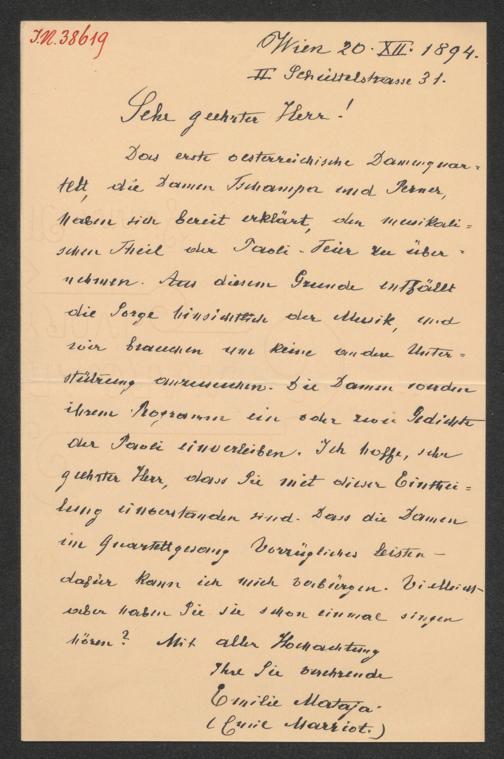 I.N. 38619
Wien 20. XII. 1894.
II Schüttelstrasse 31.
Sehr geehrter Herr!
Das erste oesterreichische Damenquar=
tett, die Damen Tschampa und Perner,
haben sich bereit erklärt, den musikali=
schen Theil der Paoli-Feier zu über=
nehmen. Aus diesem Grunde entfällt
die Sorge hinsichtlich der Musik, und
wir brauchen um keine andere Unter=
stützung anzusuchen. Die Damen werden
ihrem Programm ein oder zwei Gedichte
der Paoli einverleiben. Ich hoffe, sehr
geehrter Herr, dass Sie mit dieser Einthei=
lung einverstanden sind. Dass die Damen
im Quartettgesang Vorzügliches leisten –
dafür kann ich mich verbürgen. Vielleicht
aber haben Sie sie schon einmal singen
hören? Mit aller Hochachtung
Ihre Sie verehrende
Emilie Mataja.
(Emil Marriot.)